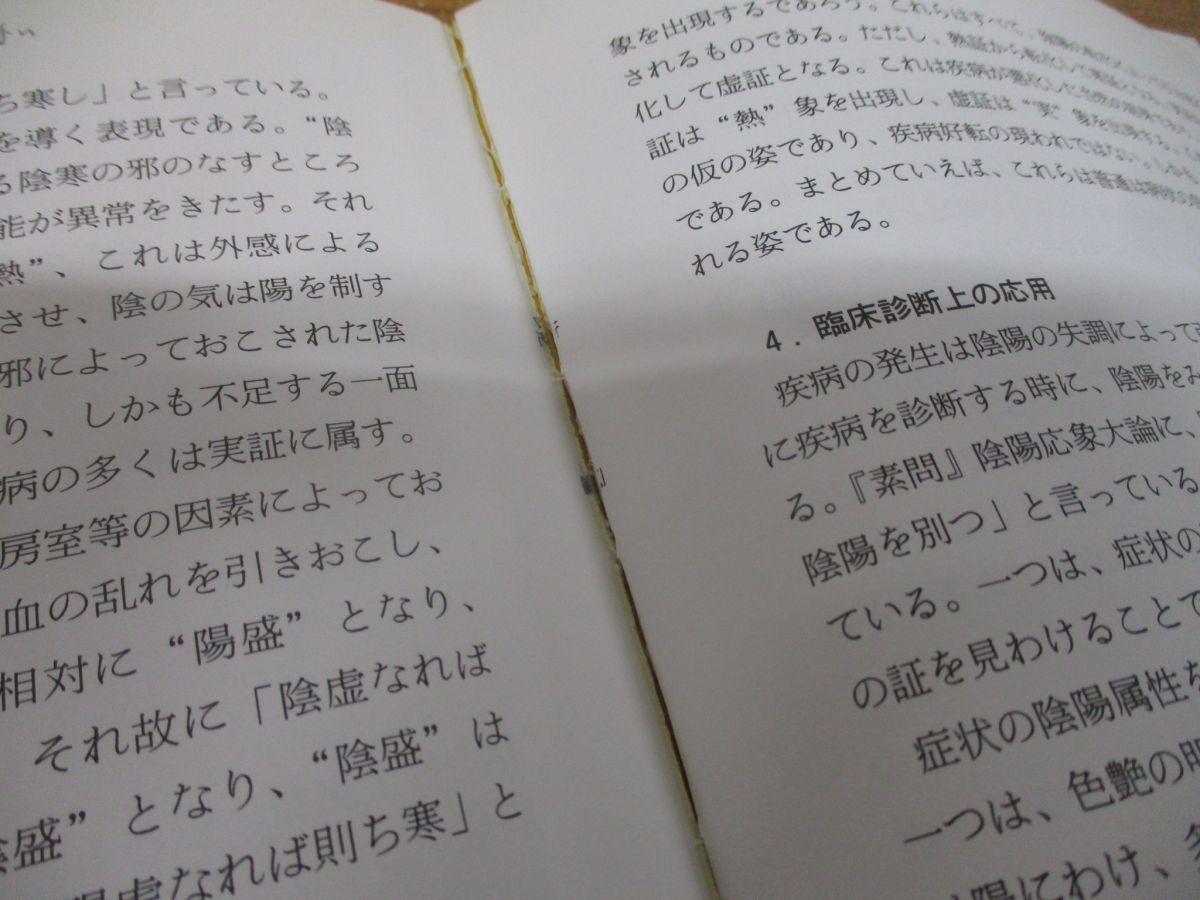 ち寒し」と言っている。
を導く表現である。“陰
る陰寒の邪のなすところ
能が異常をきたす。それ
熱”、これは外感による
させ、陰の気は陽を制す
邪によっておこされた陰
り、しかも不足する一面
病の多くは実証に属す。
房室等の因素によってお
血の乱れを引きおこし、
相対に“陽盛”となり、
それ故に「陰虚なれば
陰盛”となり、“陰盛”は
陽虚なれば則ち寒」と
象を出現するであろう。これらはすべて、
されるものである。ただし、熱証から転化して
化して虚証となる。これは疾病が悪化した
証は“熱”象を出現し、虚証は“実”象を出現する。
の仮の姿であり、疾病好転の現われではない。しかも
である。まとめていえば、これらは普通は
れる姿である。
4．臨床診断上の応用
疾病の発生は陰陽の失調によって
に疾病を診断する時に、陰陽をみ
る。『素問』陰陽応象大論に、
陰陽を別つ」と言っている
ている。一つは、症状の
の証を見わけることで
症状の陰陽属性を
一つは、色艶の明
陽にわけ、